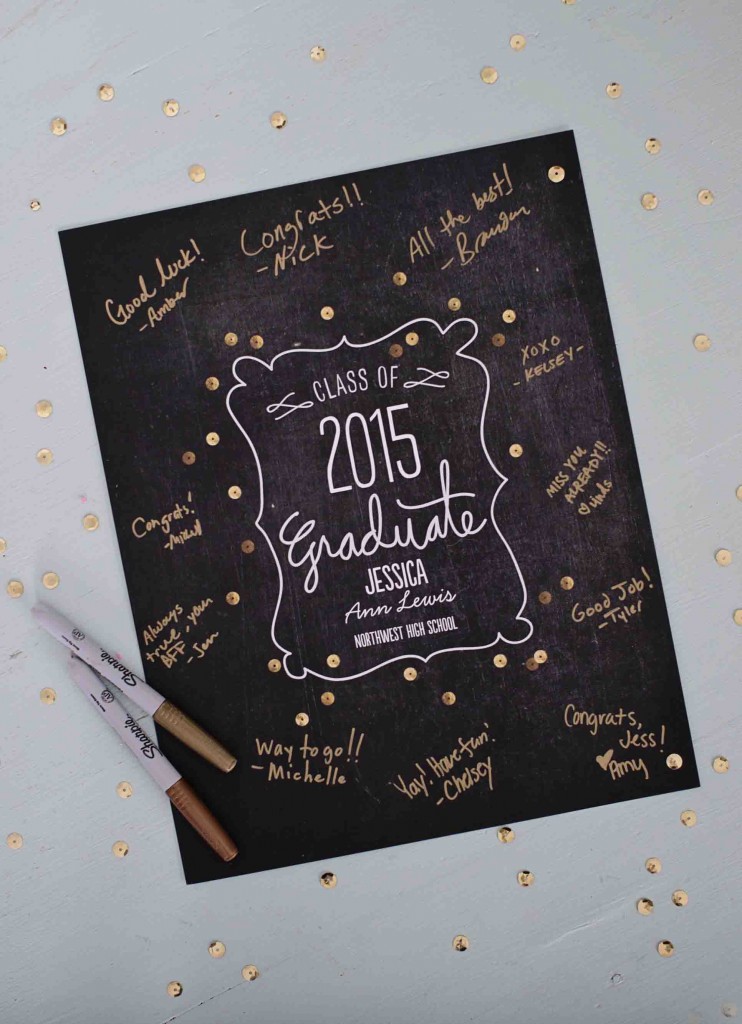 Congrats!!
-Nick
All the best!
-Brandon
Good luck!
-Amber
XOXO
-KELSEY-
CLASS OF
2015
Graduate
JESSICA
Ann Lewis
NORTHWEST HIGH SCHOOL
MISS YOU
ALREADY!!
Congrats!
Always
true, your
BFF
-Jen
Good Job!
-Tyler
Way to go!!
-Michelle
Yay! Have fun!
-Chelsey
Congrats,
Jess!
Amy
Sharpie
Sharpie